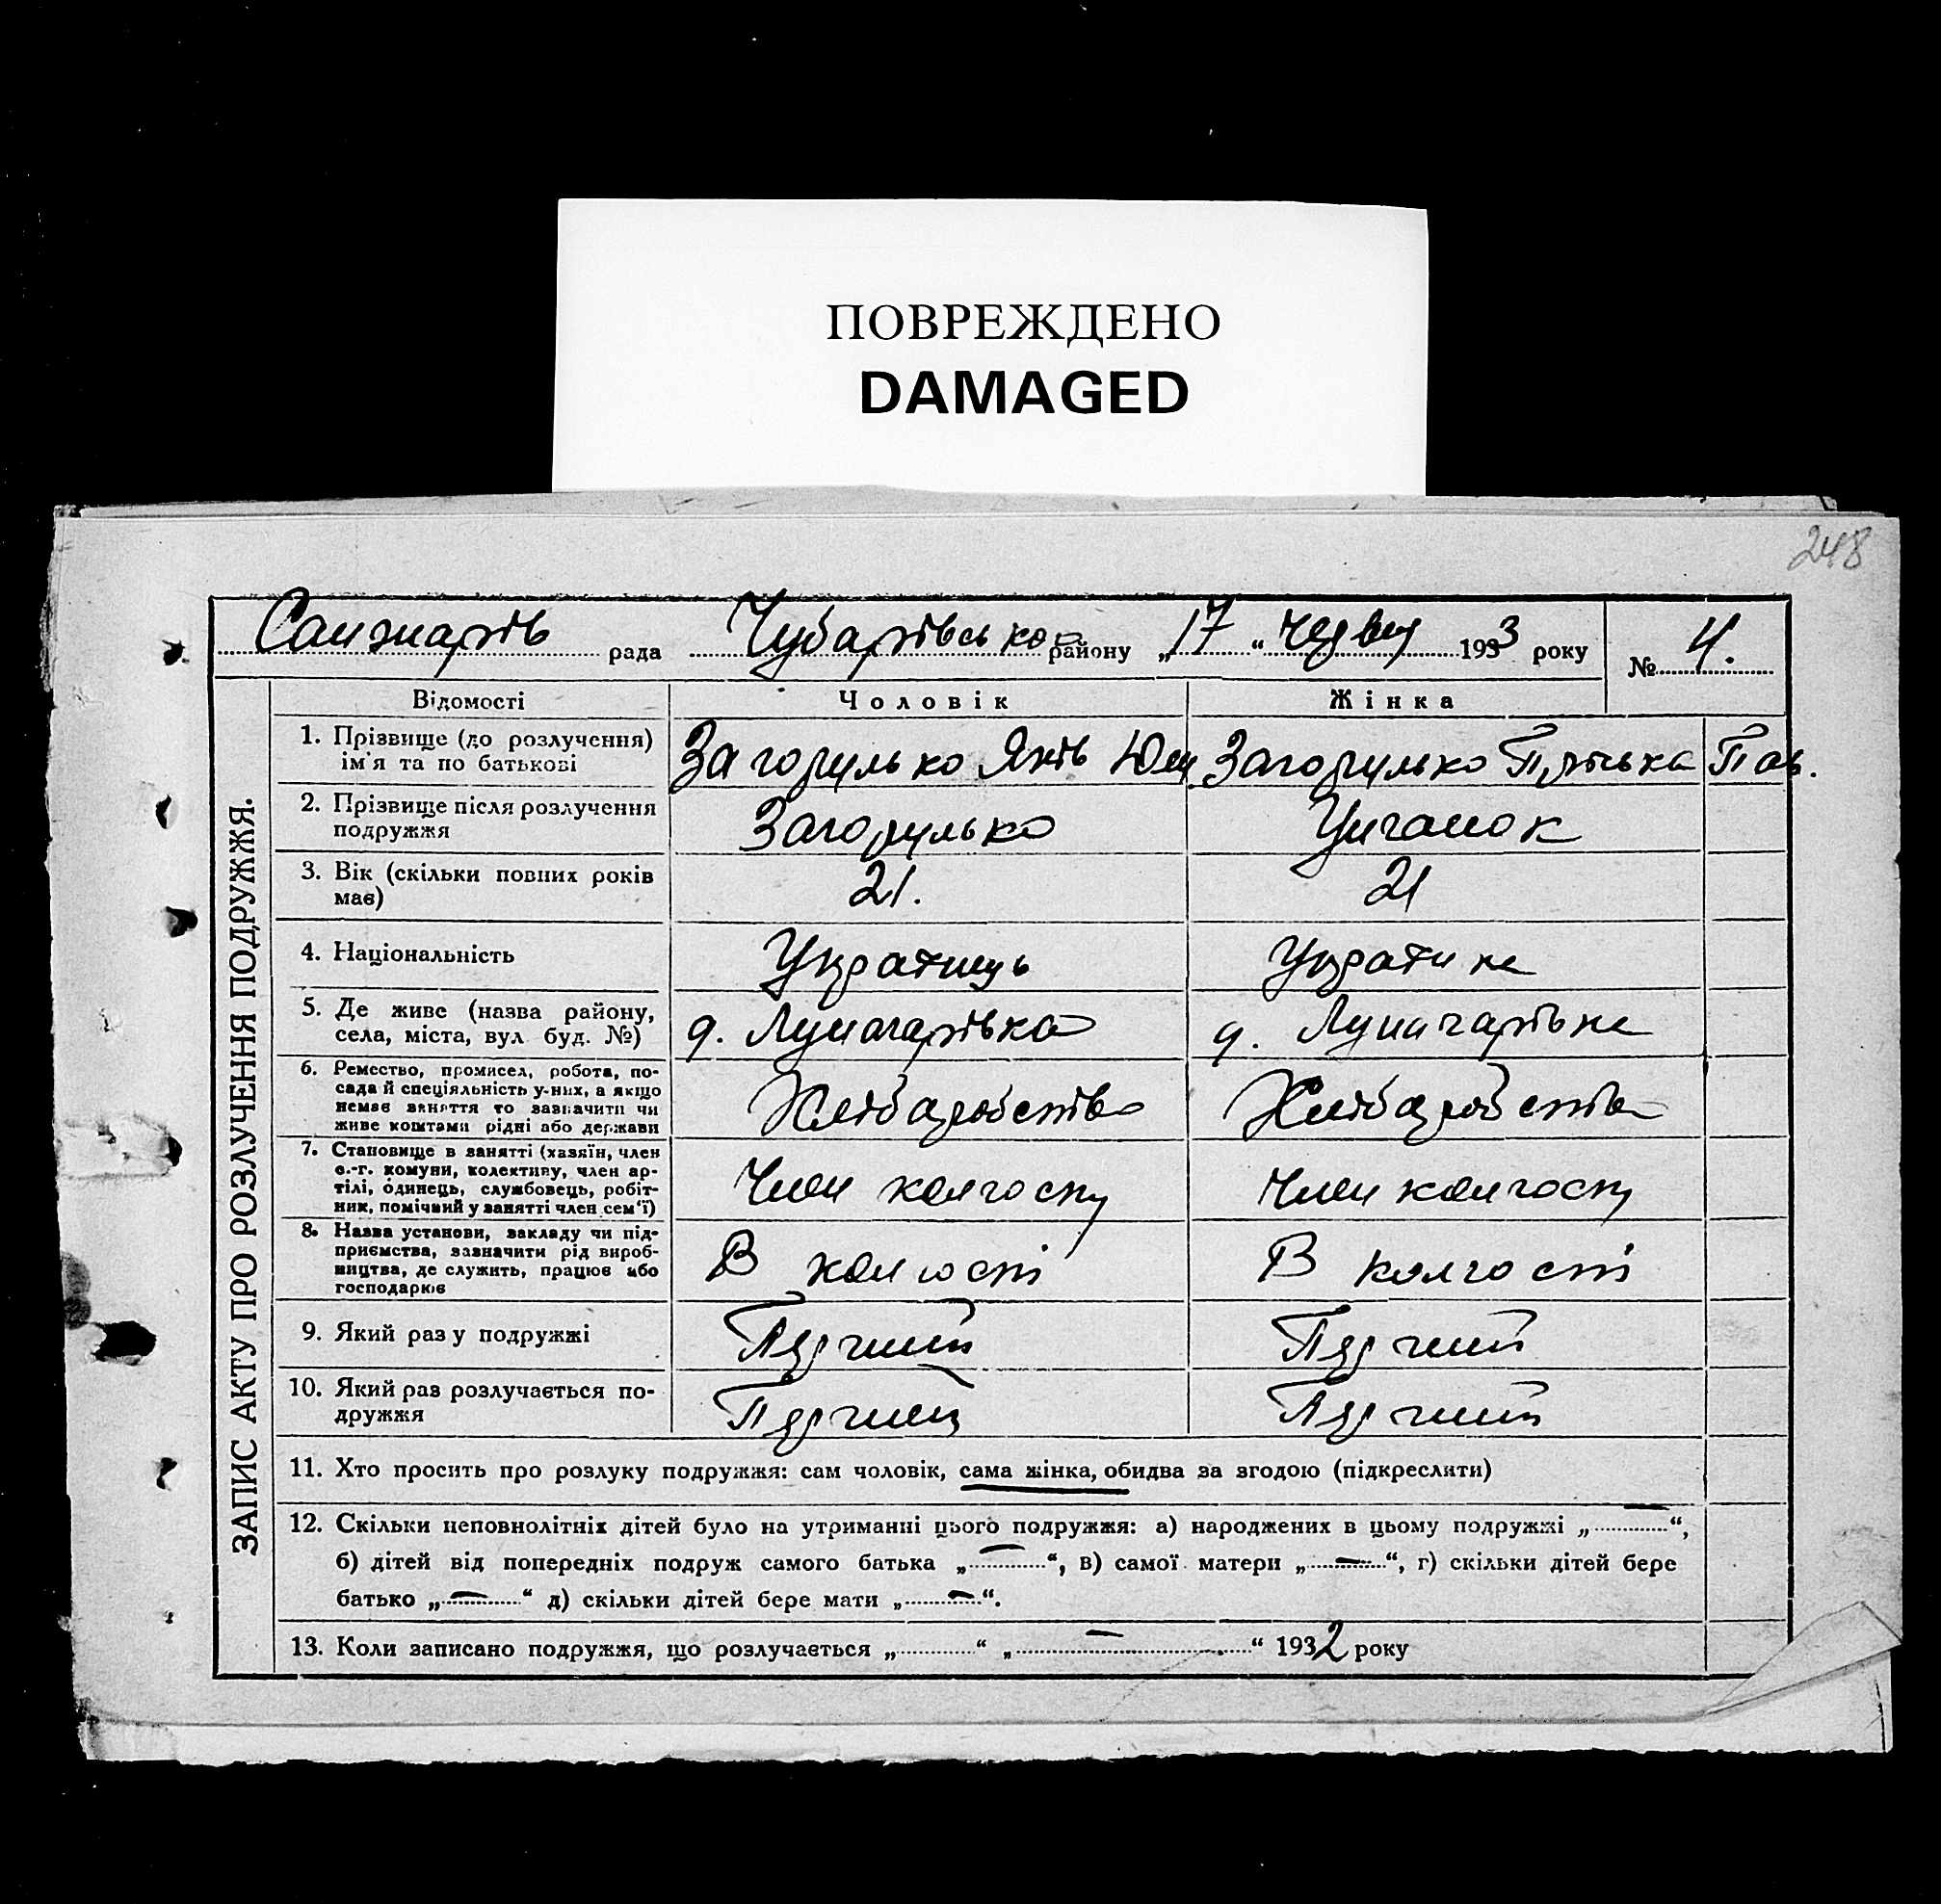 ПОВРЕЖДЕНО
DAMAGED
248
Санжарів рада Чубарівсько району „17“ червня 1933 року № 4.
ЗАПИС АКТУ ПРО РОЗЛУЧЕННЯ ПОДРУЖЖЯ.
Відомості Чоловік Жінка
1. Прізвище (до розлучення) ім'я та по батькові
Загорулько Яків Загорулько Пав.
2. Прізвище після розлучення подружжя
Загорулько Циганок
3. Вік (скільки повних років має)
21. 21
4. Національність
Українець Українка
5. Де живе (назва району, села, міста, вул буд. №)
д. Луначарівка д. Луначарівка
6. Ремество, промисел, робота, посада й спеціяльність у них, а якщо немає заняття то зазначити чи живе коштами рідні або держави
Хлібаробство Хлібаробство
7. Становище в занятті (хазяїн, член с.-г. комуни, колективу, член артілі, одинець, службовець, робітник, помічний у занятті член сем'ї)
Член колгоспу Член колгоспу
8. Назва установи, закладу чи підприємства, зазначити рід виробництва, де служить, працює або господарює
В колгоспі В колгоспі
9. Який раз у подружжі
Перший Перший
10. Який раз розлучається подружжя
Перший Перший
11. Хто просить про розлуку подружжя: сам чоловік, сама жінка, обидва за згодою (підкреслити)
12. Скільки неповнолітніх дітей було на утриманні цього подружжя: а) народжених в цьому подружжі „—“,
б) дітей від попередніх подруж самого батька „—“, в) самої матери „—“, г) скільки дітей бере
батько „—“ д) скільки дітей бере мати „—“.
13. Коли записано подружжя, що розлучається „ “ „—“ 1932 року